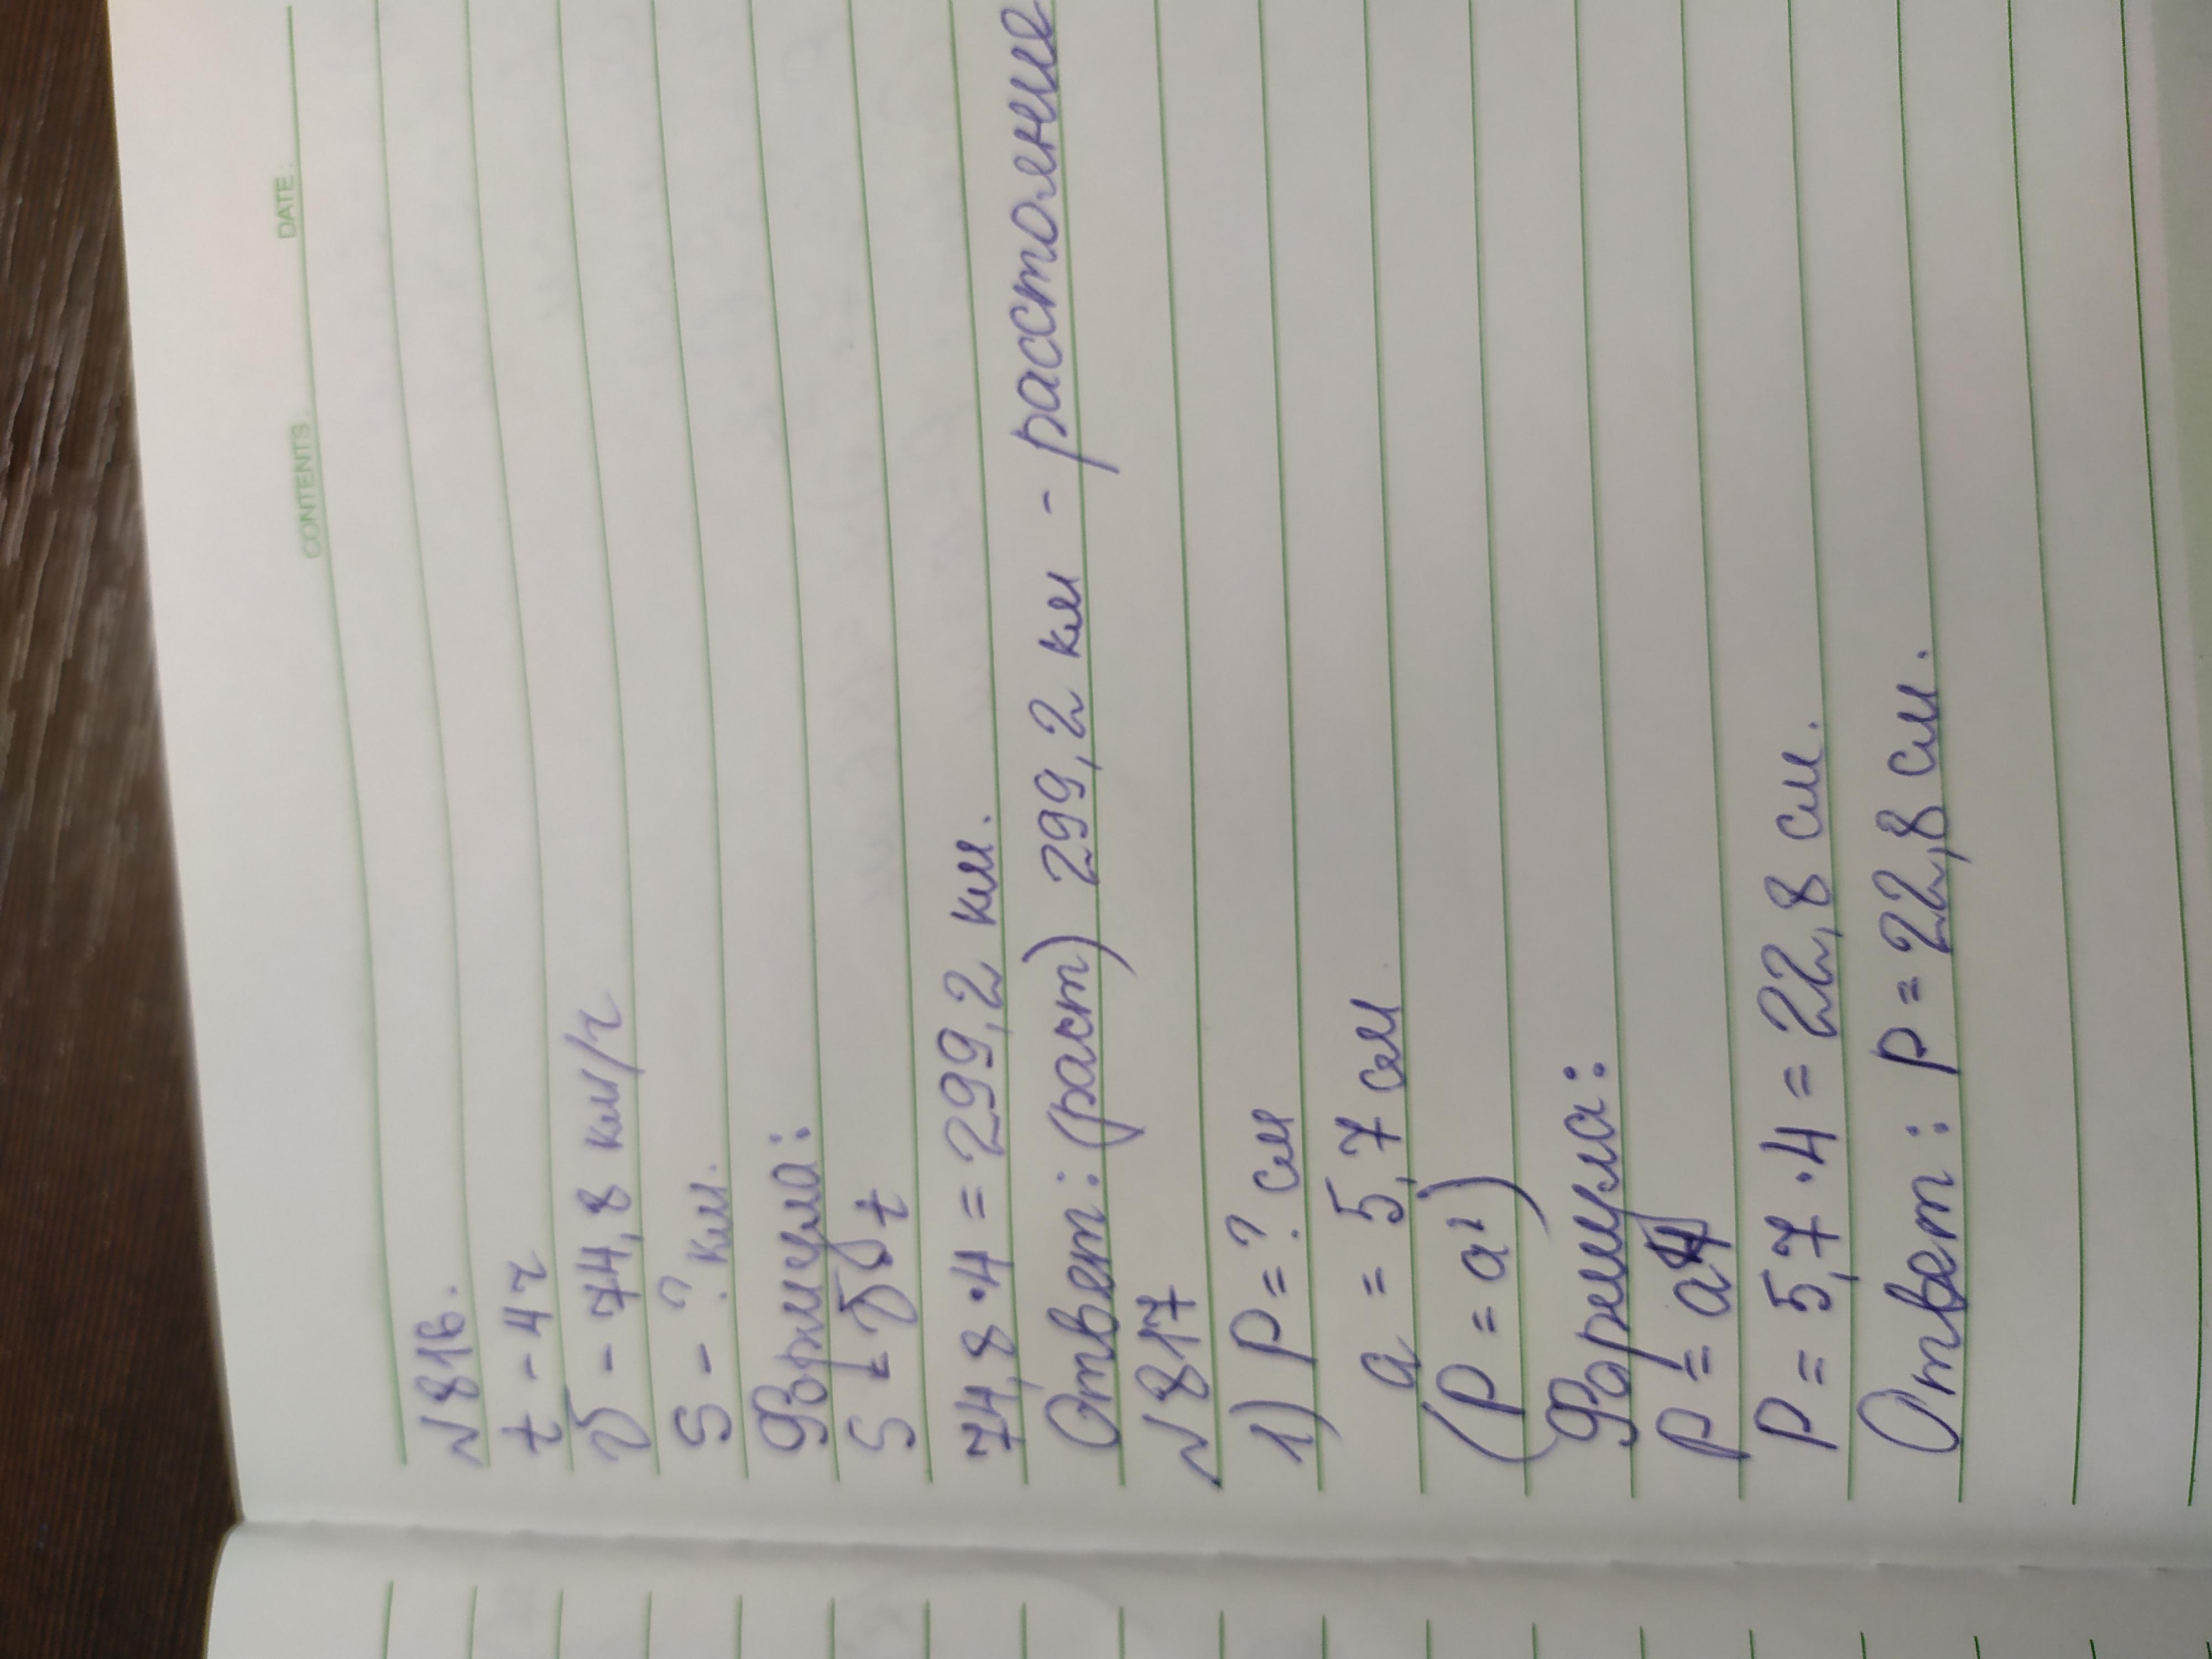 CONTENTS: DATE:
№816.
t - 4ч
v - 74,8 км/ч
S - ? км.
Формула:
S = v t
74,8 · 4 = 299,2 км.
Ответ: (раст) 299,2 км - расстояние
№817
1) P = ? см
a = 5,7 см
(P = a²)
Формула:
P = a4
P = 5,7 · 4 = 22,8 см.
Ответ: P = 22,8 см.